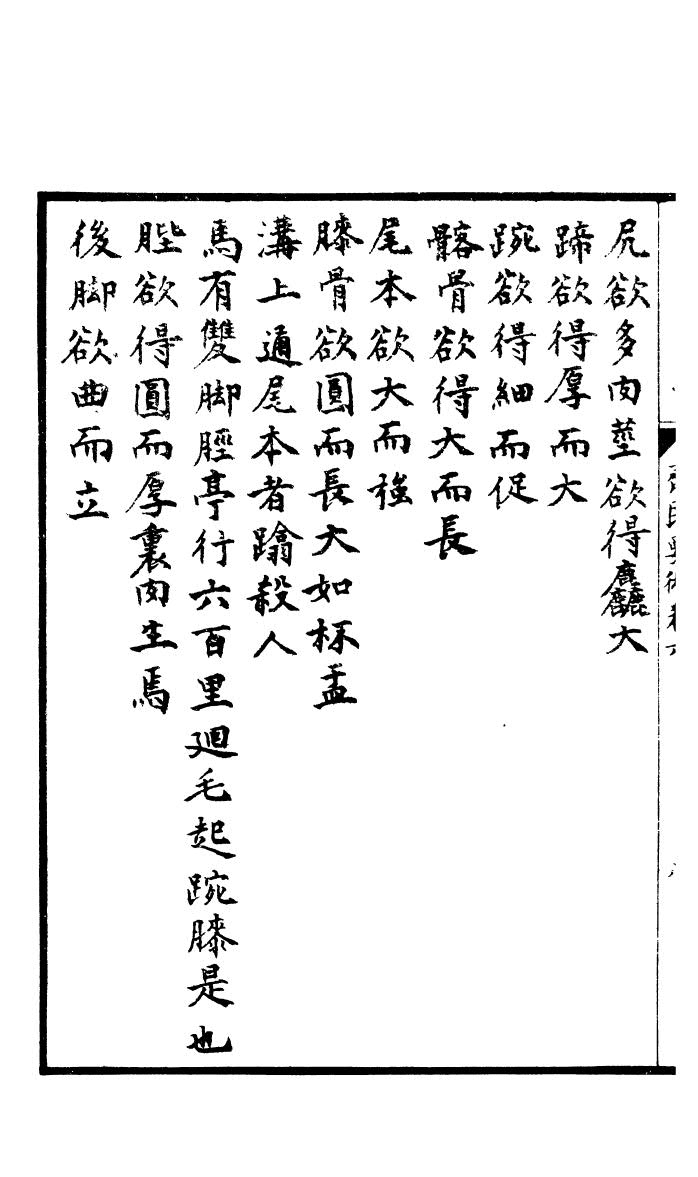 尻欲多肉莖欲得麤大
蹄欲得厚而大
踠欲得細而促
髂骨欲得大而長
尾本欲大而強
膝骨欲圓而長大如杯盂
溝上通尾本者蹹殺人
馬有雙脚脛亭行六百里廻毛起踠膝是也
䏶欲得圓而厚裏肉生焉
後脚欲曲而立